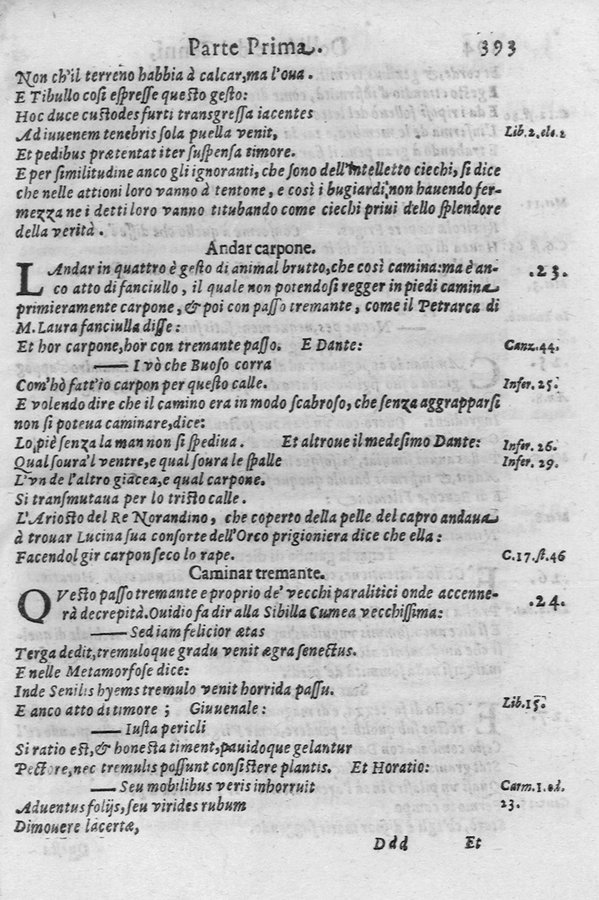 Parte Prima. 393
Non ch'il terreno habbia à calcar, ma l'oua.
E Tibullo così espresse questo gesto:
Hoc duce custodes furti transgressa iacentes
Ad iuuenem tenebris sola puella venit, Lib. 2. ele. 2
Et pedibus prætentat iter suspensa timore.
E per similitudine anco gli ignoranti, che sono dell'intelletto ciechi, si dice
che nelle attioni loro vanno à tentone, e così i bugiardi, non hauendo fer-
mezza ne i detti loro vanno titubando come ciechi priui dello splendore
della verità.
Andar carpone.
L'Andar in quattro è gesto di animal brutto, che così camina: ma è an- .23.
co atto di fanciullo, il quale non potendosi regger in piedi camina
primieramente carpone, & poi con passo tremante, come il Petrarca di
M. Laura fanciulla disse:
Et hor carpone, hor con tremante passo. E Dante: Canz. 44.
— I vò che Buoso corra
Com'hò fatt'io carpon per questo calle. Infer. 25.
E volendo dire che il camino era in modo scabroso, che senza aggrapparsi
non si poteua caminare, dice:
Lo, piè senza la man non si spediua. Et altroue il medesimo Dante: Infer. 26.
Qual soura'l ventre, e qual soura le spalle Infer. 29.
L'vn de l'altro giacea, e qual carpone.
Si transmutaua per lo tristo calle.
L'Ariosto del Re Norandino, che coperto della pelle del capro andaua
à trouar Lucina sua consorte dell'Orco prigioniera dice che ella:
Facendol gir carpon seco lo rape. C. 17. st. 46
Caminar tremante.
QVesto passo tremante e proprio de' vecchi paralitici onde accenne- .24.
rà decrepità. Ouidio fa dir alla Sibilla Cumea vecchissima:
— Sed iam felicior ætas
Terga dedit, tremuloque gradu venit ægra senectus.
E nelle Metamorfose dice:
Inde Senilis hyems tremulo venit horrida passu.
E anco atto di timore; Giuuenale: Lib. 15.
— Iusta pericli
Si ratio est, & honesta timent, pauidoque gelantur
Pectore, nec tremulis possunt consistere plantis. Et Horatio:
— Seu mobilibus veris inhorruit Carm. 1. od.
Aduentus folijs, seu virides rubum 23.
Dimouere lacertæ,
Ddd Et